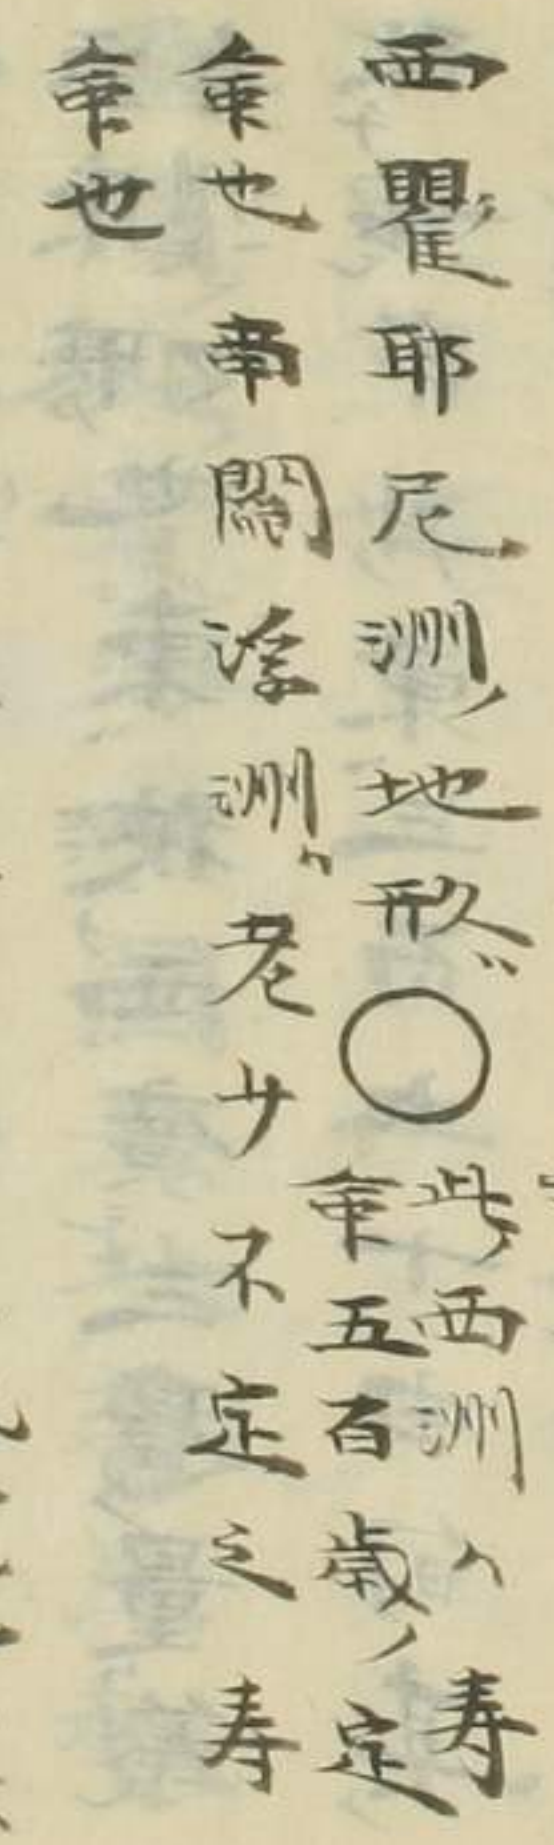 西瞿耶尼洲ノ地形ハ〇此西洲ハ寿
命五百歳ノ定
命也南閻浮洲ハ老少不定之寿
命也